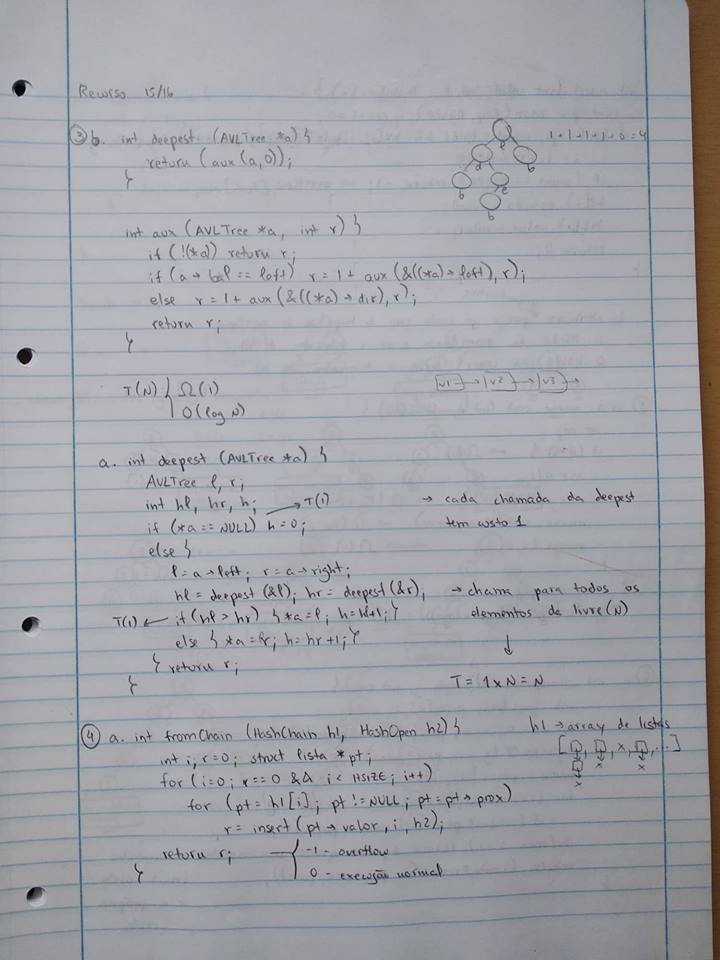 Recurso 15/16
③ b. int deepest (AVLTree *a) {
return (aux(a,0));
}
1+1+1+1+0=4
e
d b
b e
b
int aux (AVLTree *a, int r) {
if (!(*a)) return r;
if (a→bal == left) r = 1 + aux(&((*a)→left), r);
else r = 1 + aux(&((*a)→dir), r);
return r;
}
T(N) { Ω(1)
O(log N)
v1 → v2 → v3 →
a. int deepest (AVLTree *a) {
AVLTree l, r;
int hl, hr, h;
→ T(1)
if (*a == NULL) h=0;
→ cada chamada da deepest
tem custo 1
else {
l = a→left; r = a→right;
hl = deepest(&l); hr = deepest(&r);
T(1) ← if (hl > hr) { *a=l; h=hl+1; }
else { *a=r; h=hr+1; }
} return r;
}
→ chama para todos os
elementos da livre (N)
↓
T = 1xN = N
④ a. int fromChain (HashChain h1, HashOpen h2) {
int i, r=0; struct lista *pt;
for (i=0; r==0 && i < HSIZE; i++)
for (pt = h1[i]; pt != NULL; pt = pt→prox)
r = insert (pt→valor, i, h2);
return r;
-1 - overflow
0 - execução normal
}
h1 → array de listas
[ , , x, , ...]
x x
x